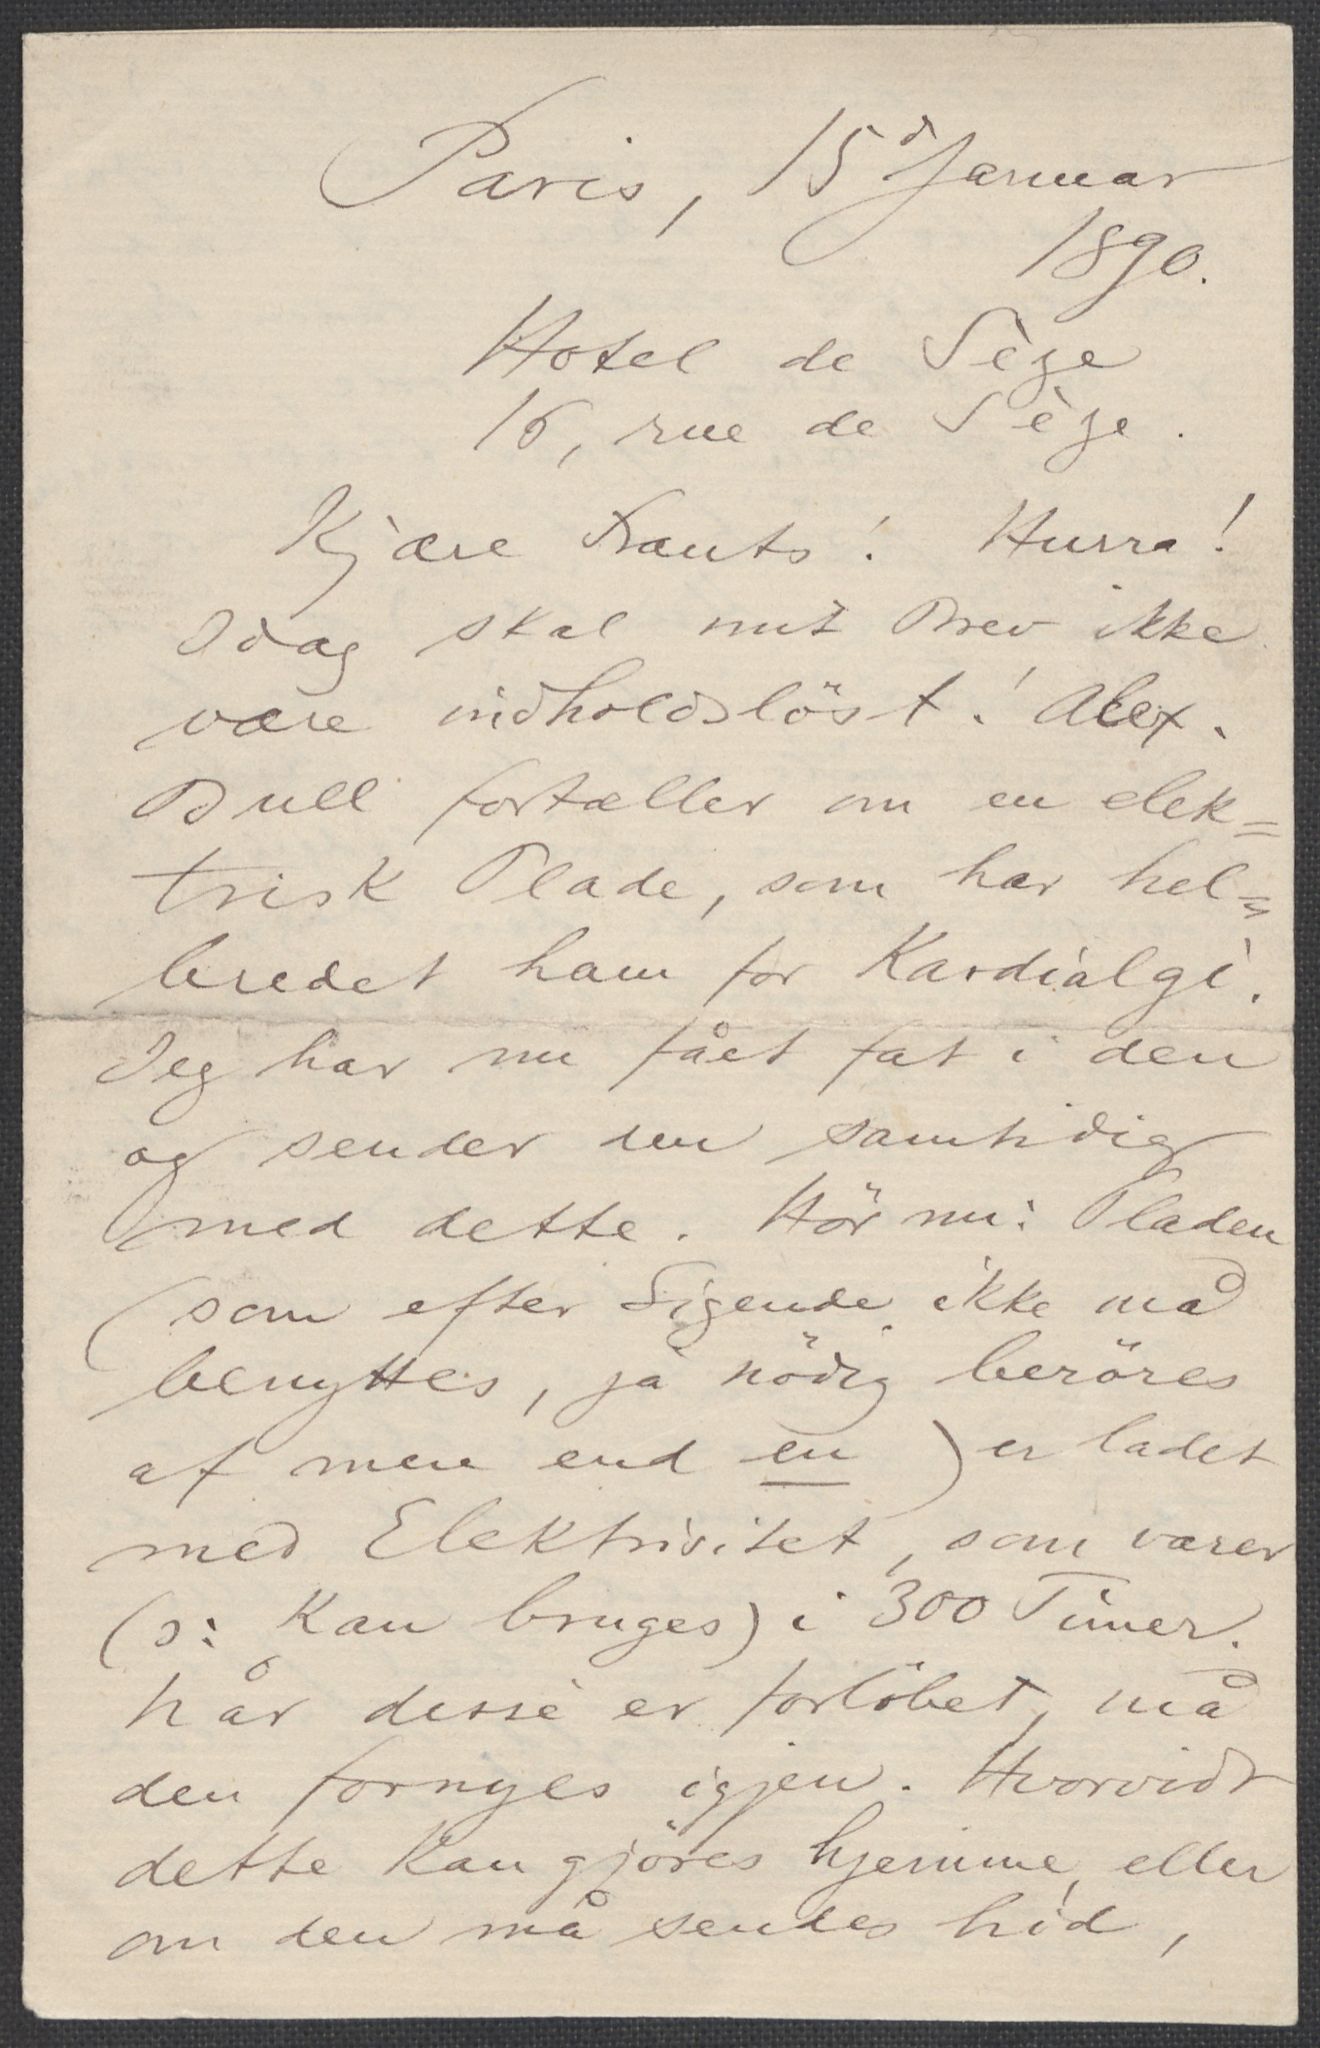 Paris, 15d Januar
1890.
Hotel de Sèze
16, rue de Sèze.
Kjære Frants! Hurra!
Idag skal mit Brev ikke
være indholdsløst! Alex.
Bull fortæller om en elek=
trisk Plade, som har hel=
bredet ham for Kardialgi.
Jeg har nu fået fat i den
og sender den samtidig
med dette. Hör nu: Pladen
(som efter Sigende ikke må
benyttes, ja nödig beröres
af mere end en) er ladet
med Elektrisitet, som varer
(ɔ: kan bruges) i 300 Timer.
Når disse er forlöbet, må
den fornyes igjen. Hvorvidt
dette kan gjöres hjemme, eller
om den må sendes hid,